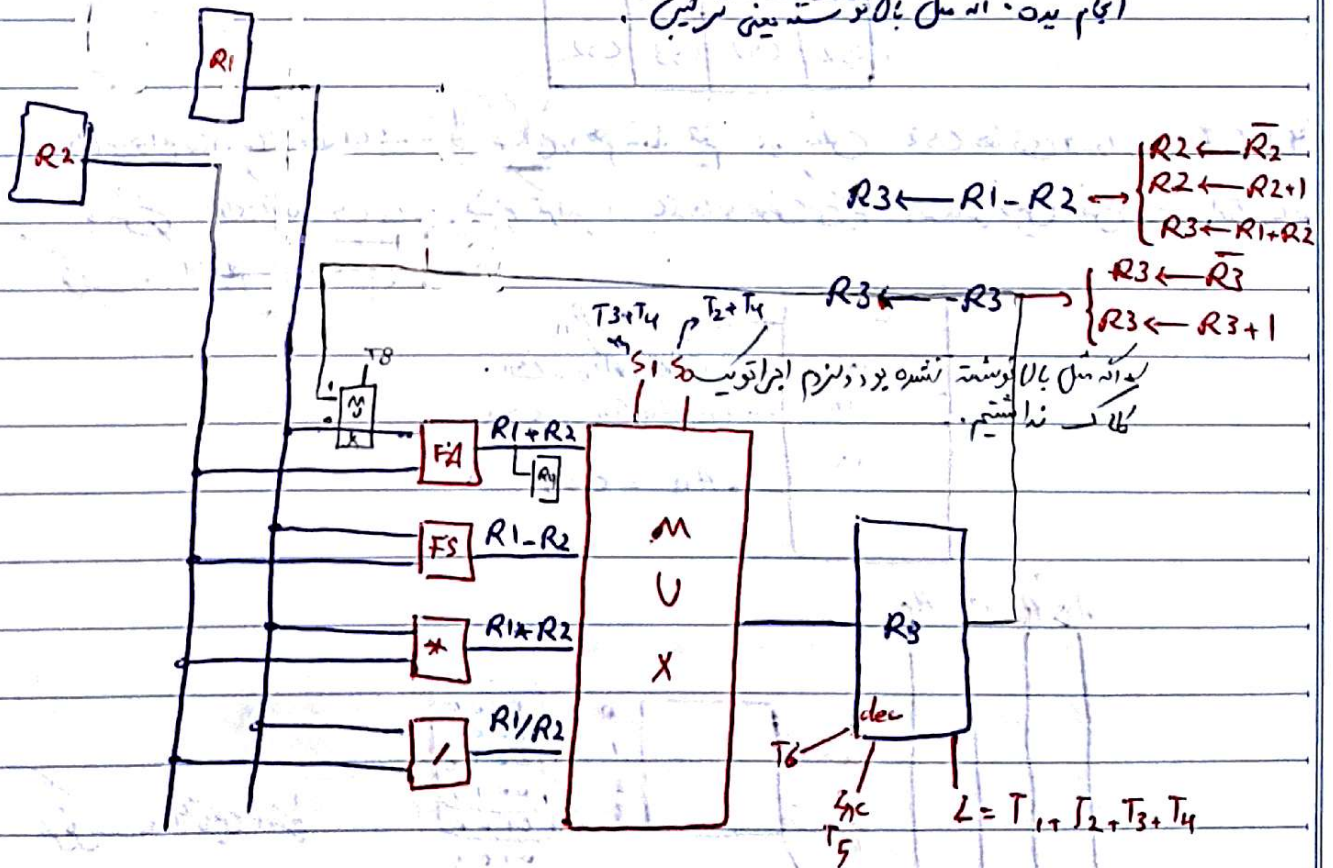 انجام بده. اگه مثل بالا نوشته یعنی ترکیبی.
R1
R2
R3 ← R1 - R2 ↔
R2 ← R̅2̅
R2 ← R2+1
R3 ← R1+R2
R3 ← -R3 →
R3 ← R̅3̅
R3 ← R3+1
T3+T4
T2+T4
S1 S0
اگه مثل بالا نوشته نشده بود دلزوم اجرا تو یک
کلاک نداشتیم.
T8
1
0
M
U
X
FA
R1+R2
R4
FS
R1-R2
*
R1*R2
/
R1/R2
M
U
X
R3
dec
T6
inc
T5
L = T1+T2+T3+T4